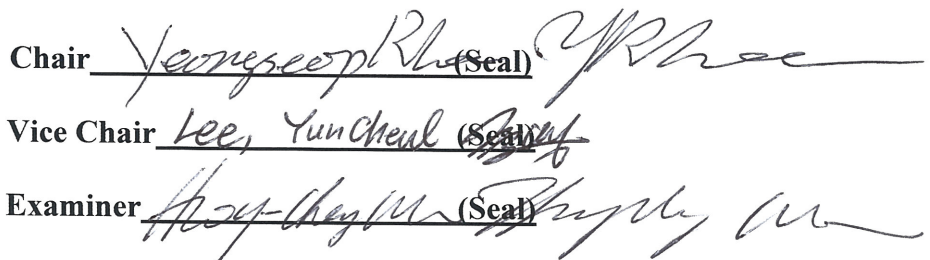 Chair Yeongseop Rhee (Seal) YRhee
Vice Chair Lee, Yun Cheul (Seal)
Examiner (Seal)